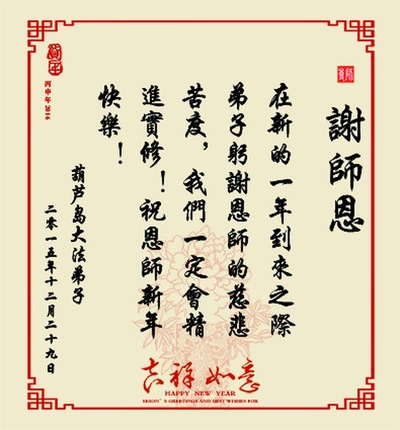 謝師恩
在新的一年到來之際
弟子躬謝恩師的慈悲
苦度，我們一定會精
進實修！祝恩師新年
快樂！
葫芦岛大法弟子
二零一五年十二月二十九日
丙申年2016
吉祥如意
HAPPY NEW YEAR
SEASON'S GREETINGS AND BEST WISHES FOR